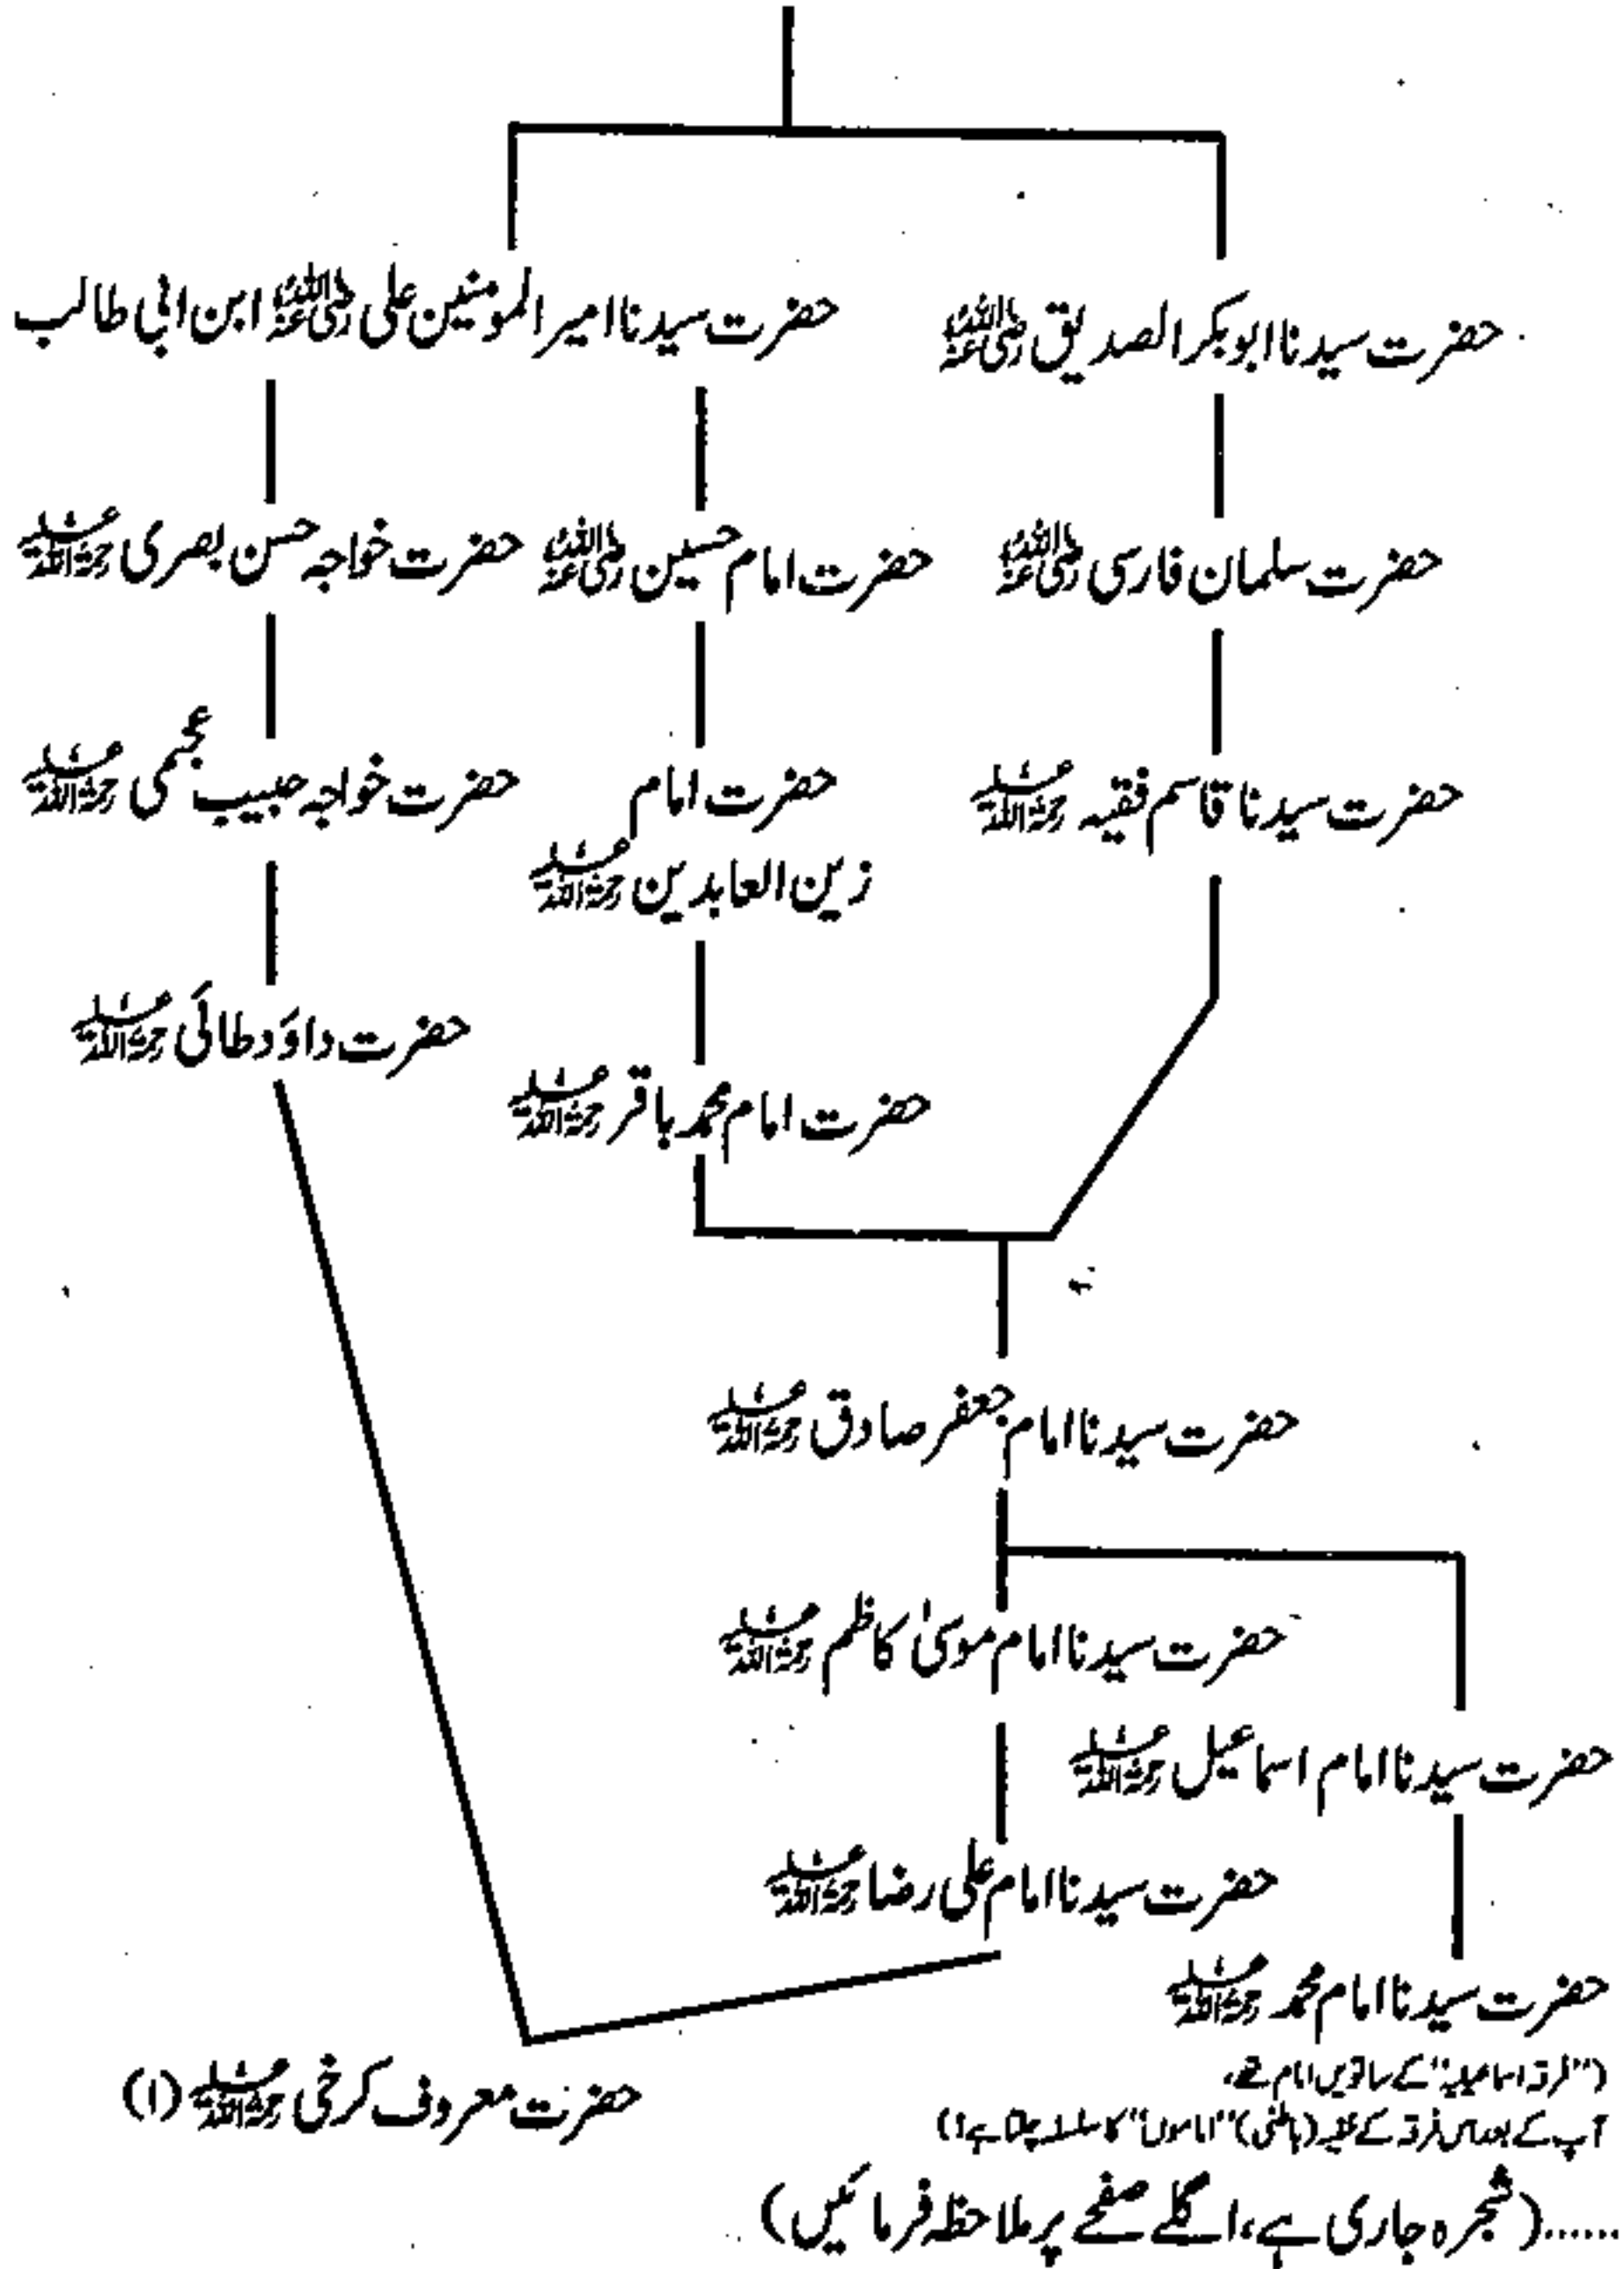 حضرت سیدنا ابوبکر الصدیق رضی اللہ عنہ
حضرت سیدنا امیر المومنین علی رضی اللہ عنہ ابن ابی طالب
حضرت سلمان فارسی رضی اللہ عنہ
حضرت امام حسین رضی اللہ عنہ
حضرت خواجہ حسن بصری رحمۃ اللہ علیہ
حضرت سیدنا قاسم فقیہ رحمۃ اللہ علیہ
حضرت امام
زین العابدین رحمۃ اللہ علیہ
حضرت خواجہ حبیب عجمی رحمۃ اللہ علیہ
حضرت داؤد طائی رحمۃ اللہ علیہ
حضرت امام محمد باقر رحمۃ اللہ علیہ
حضرت سیدنا امام جعفر صادق رحمۃ اللہ علیہ
حضرت سیدنا امام موسیٰ کاظم رحمۃ اللہ علیہ
حضرت سیدنا امام اسماعیل رحمۃ اللہ علیہ
حضرت سیدنا امام علی رضا رحمۃ اللہ علیہ
حضرت سیدنا امام محمد رحمۃ اللہ علیہ
("فرقہ اسماعیلیہ" کے ساتویں امام تھے،
آپ کے بعد اس فرقہ کے خفیہ (باطنی) "اماموں" کا سلسلہ چلتا ہے!)
حضرت معروف کرخی رحمۃ اللہ علیہ (۱)
......(شجرہ جاری ہے، اگلے صفحے پر ملاحظہ فرمائیں)